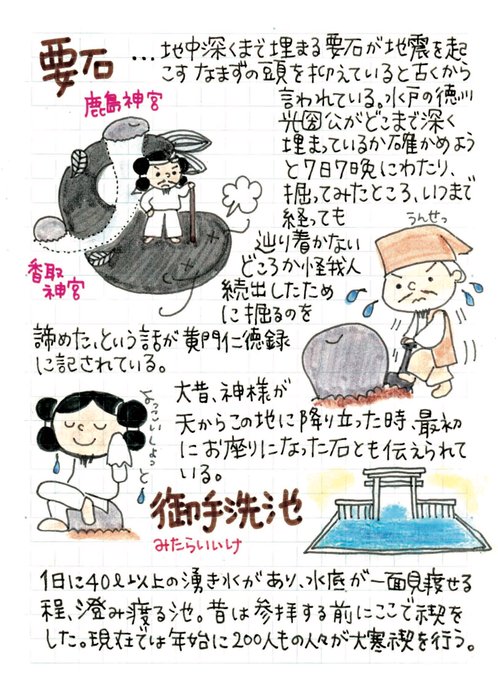 要石…地中深くまで埋まる要石が地震を起
こすなまずの頭を抑えていると古くから
言われている。水戸の徳川
光圀公がどこまで深く
埋まっているか確かめよう
と7日7晩にわたり、
掘ってみたところ、いつまで
経っても
辿り着かない
どころか怪我人
続出したため
に掘るのを
諦めた、という話が黄門仁徳録
に記されている。
鹿島神宮
香取
神宮
うんせっ
大昔、神様が
天からこの地に降り立った時、最初
にお座りになった石とも伝えられて
いる。
よっこいしょっ
と
御手洗池
みたらいいけ
1日に40ℓ以上の湧き水があり、水底が一面見渡せる
程、澄み渡る池。昔は参拝する前にここで禊を
した。現在では年始に200人もの人々が大寒禊を行う。